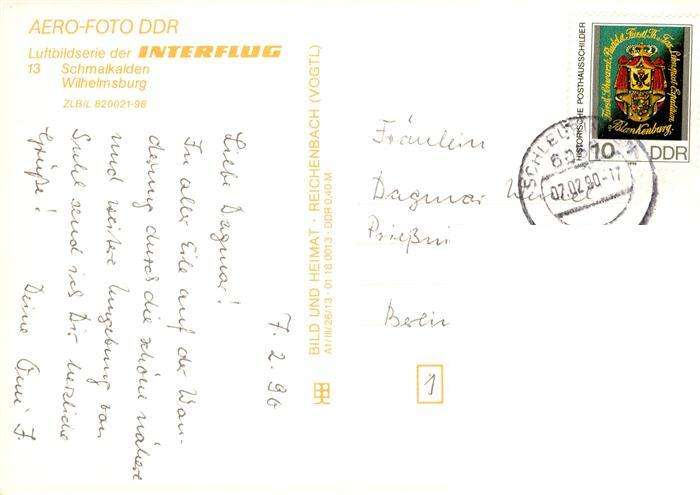 AERO-FOTO DDR
Luftbildserie der INTERFLUG
13 Schmalkalden
Wilhelmsburg
ZLB/L 820021-98
7. 2. 90
Liebe Dagmar!
In aller Eile auf der Wan-
derung durch die schöne nähere
und weitere Umgebung von
Suhl send ich Dir herzliche
Grüße!
Deine
BILD UND HEIMAT · REICHENBACH (VOGTL)
A1/III/26/13 · 01 18 0013 · DDR 0,40 M
HISTORISCHE POSTHAUSSCHILDER
Blankenburg.
10
DDR
07.02.90-17
Fräulein
Dagmar
Berlin
1